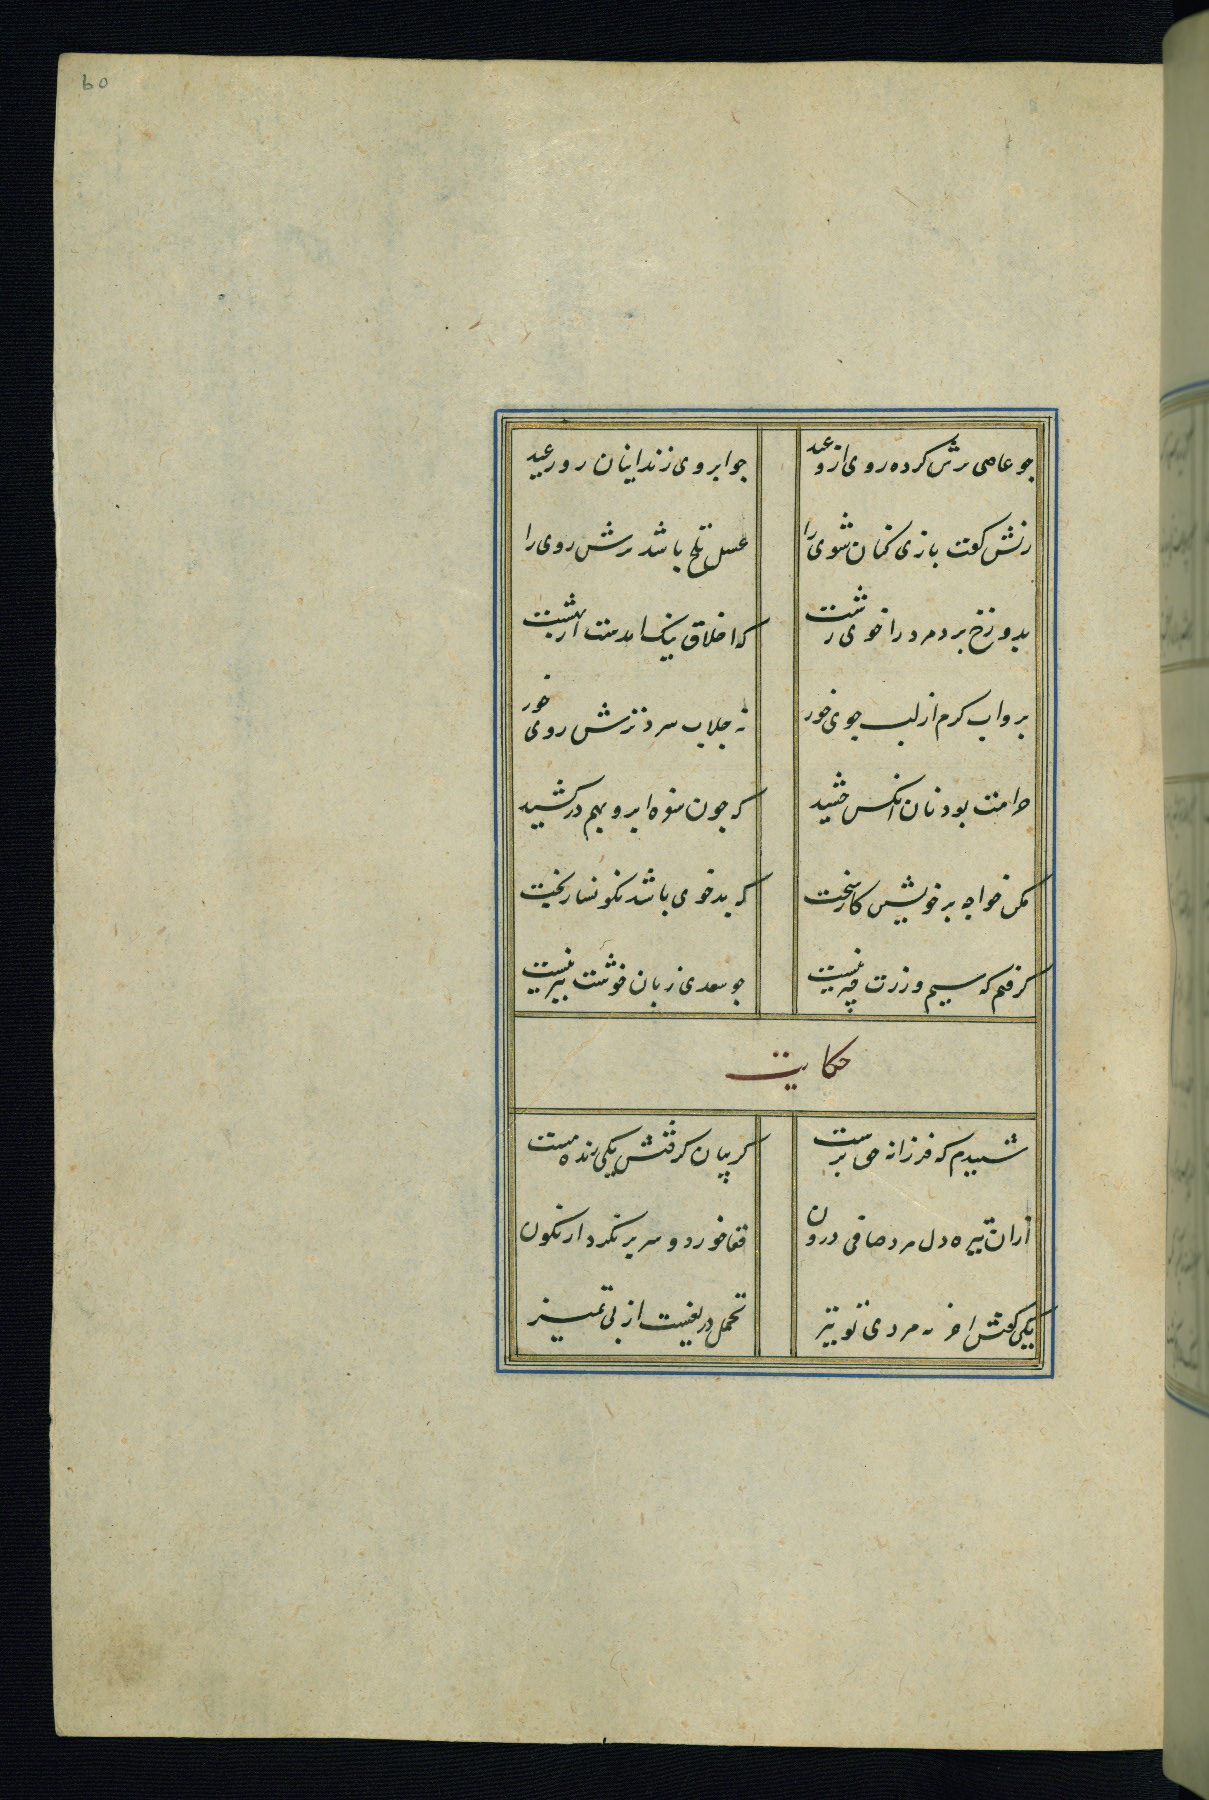 60
جو عاصی ترش کرده روی از وعید
جو ابروی زندانیان روز عید
زنش کفت بازی کنان شوی را
عسل تلخ باشد ترش روی را
بدوزخ برد مرد را خوی زشت
که اخلاق نیک امدست از بهشت
برو اب کرم از لب جوی خور
نه جلاب سرد ترش روی خور
حرامت بود نان انکس چشید
که جون سفره ابرو بهم درکشید
مکن خواجه بر خویشتن کار سخت
که بدخوی باشد نکونسار بخت
کرفتم که سیم و زرت چیز نیست
جو سعدی زبان خوشت نیز نیست
حکایت
شنیدم که فرزانه حق پرست
کریبان کرفتش یکی رند مست
ازان تیره دل مرد صافی درون
قفا خورد و سر بر نکرد از نکون
یکی کفتش اخر نه مردی تو نیز
تحمل دریغست از بی تمیز